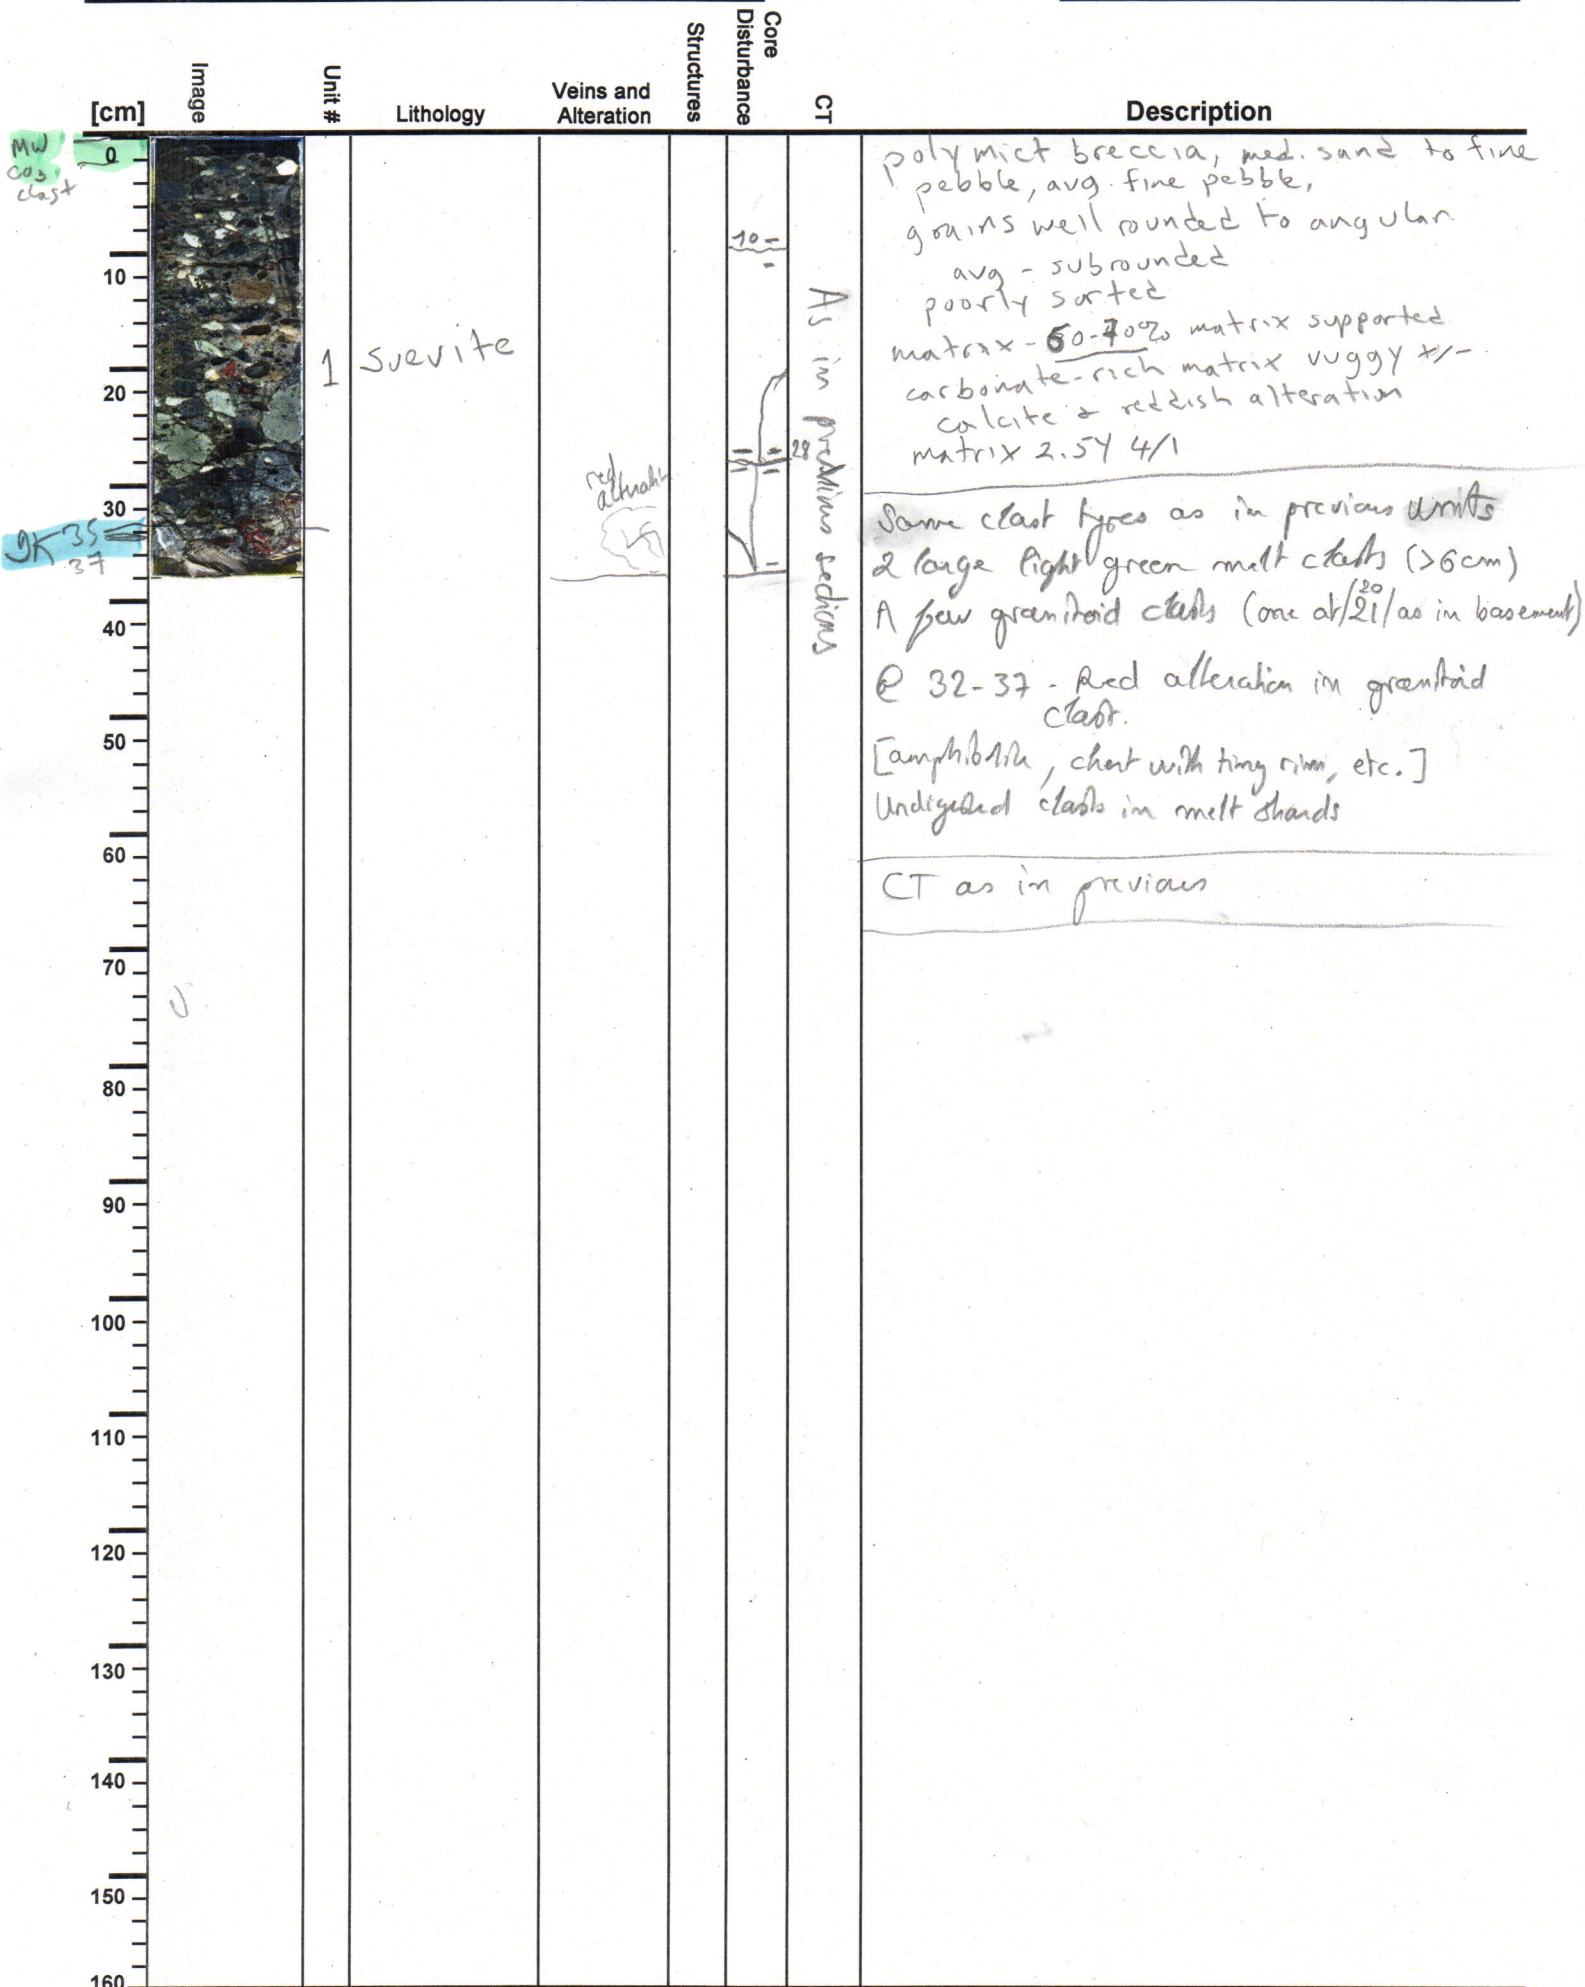 [cm]
Image
Unit #
Lithology
Veins and
Alteration
Structures
Core
Disturbance
CT
Description
MW
CO3
clast
0
10
20
30
40
50
60
70
80
90
100
110
120
130
140
150
160
JK 35
37
1
Suevite
red
10
28
As in previous sections
polymict breccia, med. sand to fine
pebble, avg. fine pebble,
grains well rounded to angular
avg - subrounded
poorly sorted
matrix - 60-70% matrix supported
carbonate-rich matrix vuggy +/-
calcite & reddish alteration
matrix 2.5Y 4/1
Same clast types as in previous units
2 large light green melt clasts (>6cm)
A few granitoid clasts (one at 20/21/as in basement)
@ 32-37 - Red alteration in granitoid
clast.
[amphibolite, chert with tiny rim, etc.]
Undigested clasts in melt shards
CT as in previous